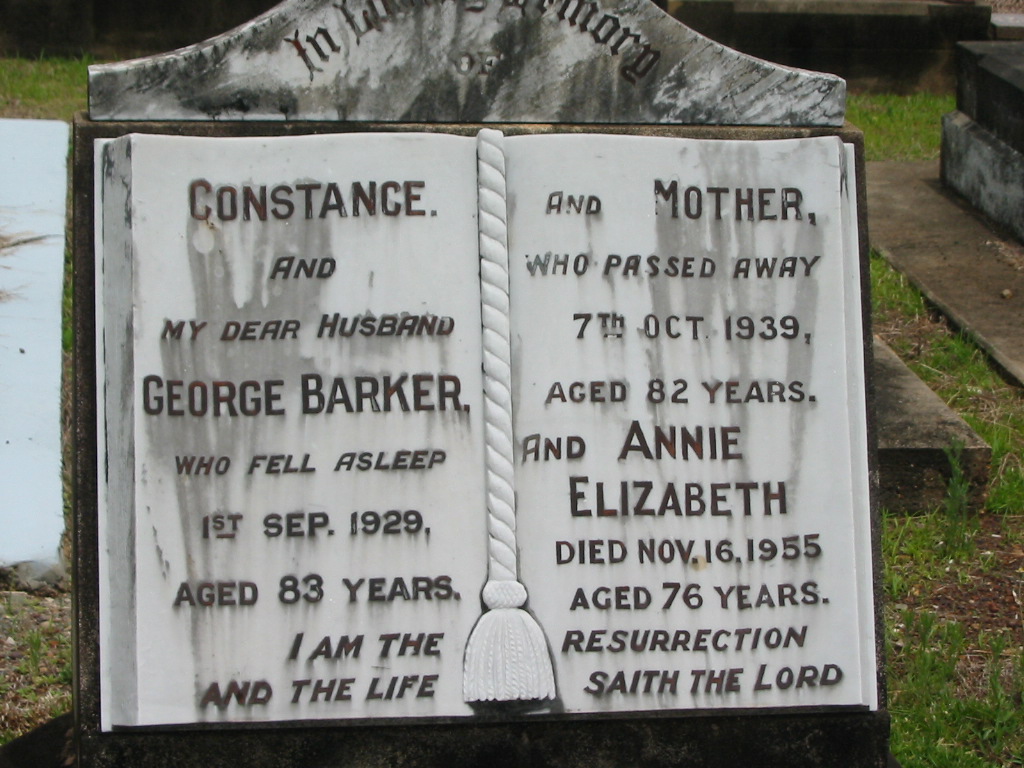 In Loving Memory
OF
CONSTANCE.
AND
MY DEAR HUSBAND
GEORGE BARKER,
WHO FELL ASLEEP
1ST SEP. 1929,
AGED 83 YEARS.
I AM THE
AND THE LIFE
AND MOTHER,
WHO PASSED AWAY
7TH OCT. 1939,
AGED 82 YEARS.
AND ANNIE
ELIZABETH
DIED NOV. 16. 1955
AGED 76 YEARS.
RESURRECTION
SAITH THE LORD